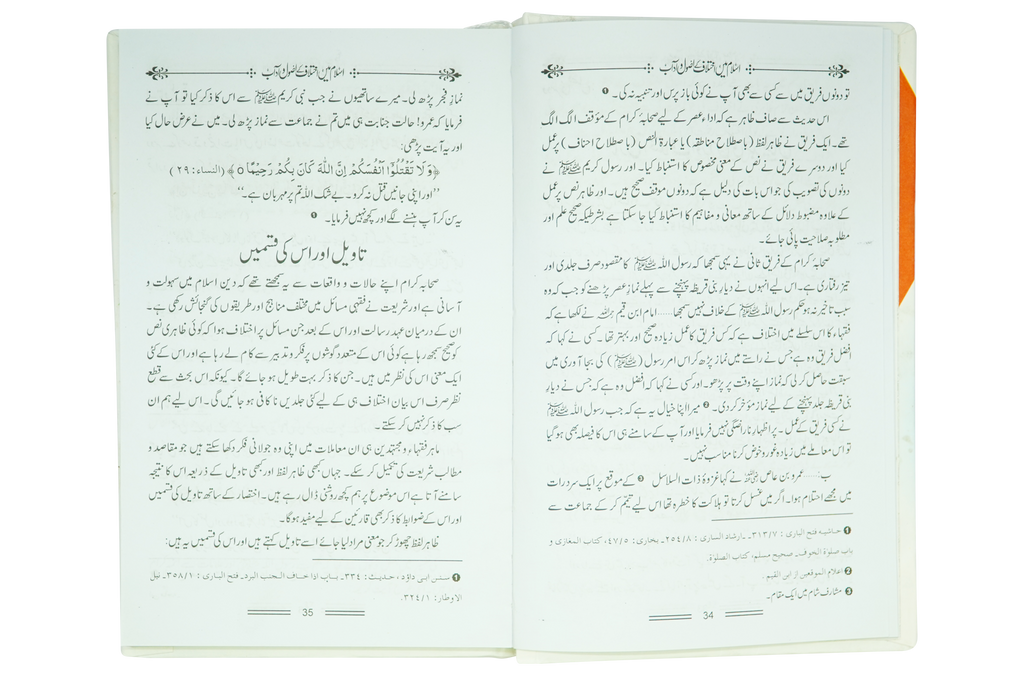 اسلام میں اختلاف کے اصول و آداب
تو دونوں فریق میں سے کسی سے بھی آپ نے کوئی باز پرس اور تنبیہ نہ کی۔ ❶
اس حدیث سے صاف ظاہر ہے کہ اداء عصر کے لیے صحابۂ کرام کے مؤقف الگ الگ
تھے۔ ایک فریق نے ظاہر لفظ (باصطلاح مناطقہ) یا عبارۃ النص (باصطلاح احناف) پر عمل
کیا اور دوسرے فریق نے نص کے معنی مخصوص کا استنباط کیا۔ اور رسول کریم ﷺ نے
دونوں کی تصویب کی جو اس بات کی دلیل ہے کہ دونوں موقف صحیح ہیں۔ اور ظاہر نص پر عمل
کے علاوہ مضبوط دلائل کے ساتھ معانی و مفاہیم کا استنباط کیا جا سکتا ہے بشرطیکہ صحیح علم اور
مطلوبہ صلاحیت پائی جائے۔
صحابۂ کرام کے فریق ثانی نے یہی سمجھا کہ رسول اللہ ﷺ کا مقصود صرف جلدی اور
تیز رفتاری ہے۔ اس لیے انہوں نے دیار بنی قریظہ پہنچنے سے پہلے نماز عصر پڑھنے کو جب کہ وہ
سبب تاخیر نہ ہو حکم رسول اللہ ﷺ کے خلاف نہیں سمجھا...... امام ابن قیم رحمہ اللہ نے لکھا ہے کہ
فقہاء کا اس سلسلے میں اختلاف ہے کہ کس فریق کا عمل زیادہ صحیح اور بہتر تھا۔ کسی نے کہا کہ
افضل فریق وہ ہے جس نے راستے میں نماز پڑھ کر اس امر رسول (ﷺ) کی بجا آوری میں
سبقت حاصل کر لی کہ نماز اپنے وقت پر پڑھو۔ اور کسی نے کہا کہ افضل وہ ہے کہ جس نے دیار
بنی قریظہ جلد پہنچنے کے لیے نماز مؤخر کر دی۔ ❷ میرا اپنا خیال یہ ہے کہ جب رسول اللہ ﷺ
نے کسی فریق کے عمل۔ پر اظہار ناراضگی نہیں فرمایا اور آپ کے سامنے ہی اس کا فیصلہ بھی ہو گیا
تو اس معاملے میں زیادہ غور و خوض کرنا مناسب نہیں۔
ب:...... عمرو بن عاص رضی اللہ عنہ نے کہا غزوۂ ذات السلاسل ❸ کے موقع پر ایک سرد رات
میں مجھے احتلام ہوا۔ اگر میں غسل کرتا تو ہلاکت کا خطرہ تھا اس لیے تیمم کر کے جماعت سے
❶ حاشیہ فتح الباری: ۳۱۳/۷۔ ارشاد الساری: ۲۵۴/۸۔ بخاری: ۴۷/۵، کتاب المغازی و
باب صلوٰۃ الخوف۔ صحیح مسلم، کتاب الصلوٰۃ۔
❷ اعلام الموقعین از ابن القیم۔
❸ مشارف شام میں ایک مقام۔
34
اسلام میں اختلاف کے اصول و آداب
نماز فجر پڑھ لی۔ میرے ساتھیوں نے جب نبی کریم ﷺ سے اس کا ذکر کیا تو آپ نے
فرمایا کہ عمرو! حالت جنابت ہی میں تم نے جماعت سے نماز پڑھ لی۔ میں نے عرض حال کیا
اور یہ آیت پڑھی:
﴿وَلَا تَقْتُلُوْٓا اَنْفُسَكُمْ اِنَّ اللّٰهَ كَانَ بِكُمْ رَحِيْمًا ○﴾ (النساء: ۲۹)
’’اور اپنی جانیں قتل نہ کرو۔ بے شک اللہ تم پر مہربان ہے۔‘‘
یہ سن کر آپ ہنسنے لگے اور کچھ نہیں فرمایا۔ ❶
تاویل اور اس کی قسمیں
صحابہ کرام اپنے حالات و واقعات سے یہ سمجھتے تھے کہ دین اسلام میں سہولت و
آسانی ہے اور شریعت نے فقہی مسائل میں مختلف مناہج اور طریقوں کی گنجائش رکھی ہے۔
ان کے درمیان عہد رسالت اور اس کے بعد جن مسائل پر اختلاف ہوا کہ کوئی ظاہری نص
کو صحیح سمجھ رہا ہے کوئی اس کے متعدد گوشوں پر فکر و تدبیر سے کام لے رہا ہے اور اس کے کئی
ایک معنی اس کی نظر میں ہیں۔ جن کا ذکر بہت طویل ہو جائے گا۔ کیونکہ اس بحث سے قطع
نظر صرف اس بیان اختلاف ہی کے لیے کئی جلدیں ناکافی ہو جائیں گی۔ اس لیے ہم ان
سب کا ذکر نہیں کر سکتے۔
ماہر فقہاء و مجتہدین ہی ان معاملات میں اپنی وہ جولانی فکر دکھا سکتے ہیں جو مقاصد و
مطالب شریعت کی تکمیل کر سکے۔ جہاں کبھی ظاہر لفظ اور کبھی تاویل کے ذریعہ اس کا نتیجہ
سامنے آتا ہے اس موضوع پر ہم کچھ روشنی ڈال رہے ہیں۔ اختصار کے ساتھ تاویل کی قسمیں
اور اس کے ضوابط کا ذکر بھی قارئین کے لیے مفید ہوگا۔
ظاہر لفظ چھوڑ کر جو معنی مراد لیا جائے اسے تاویل کہتے ہیں اور اس کی قسمیں یہ ہیں:
❶ سنن ابی داؤد، حدیث: ۳۳۴۔ باب اذا خاف الجنب البرد۔ فتح الباری: ۳۵۸/۱۔ نیل
الاوطار: ۳۲۴/۱۔
35